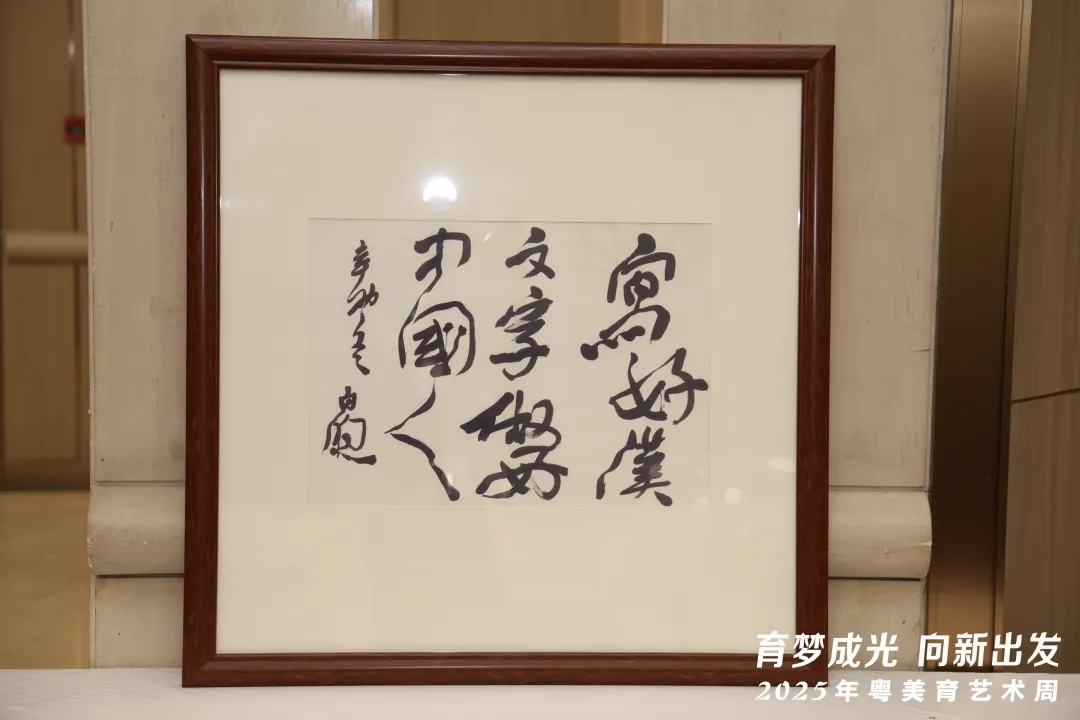 寫好漢
文字做好
中國人
辛卯冬
育梦成光 向新出发
2025年粤美育艺术周